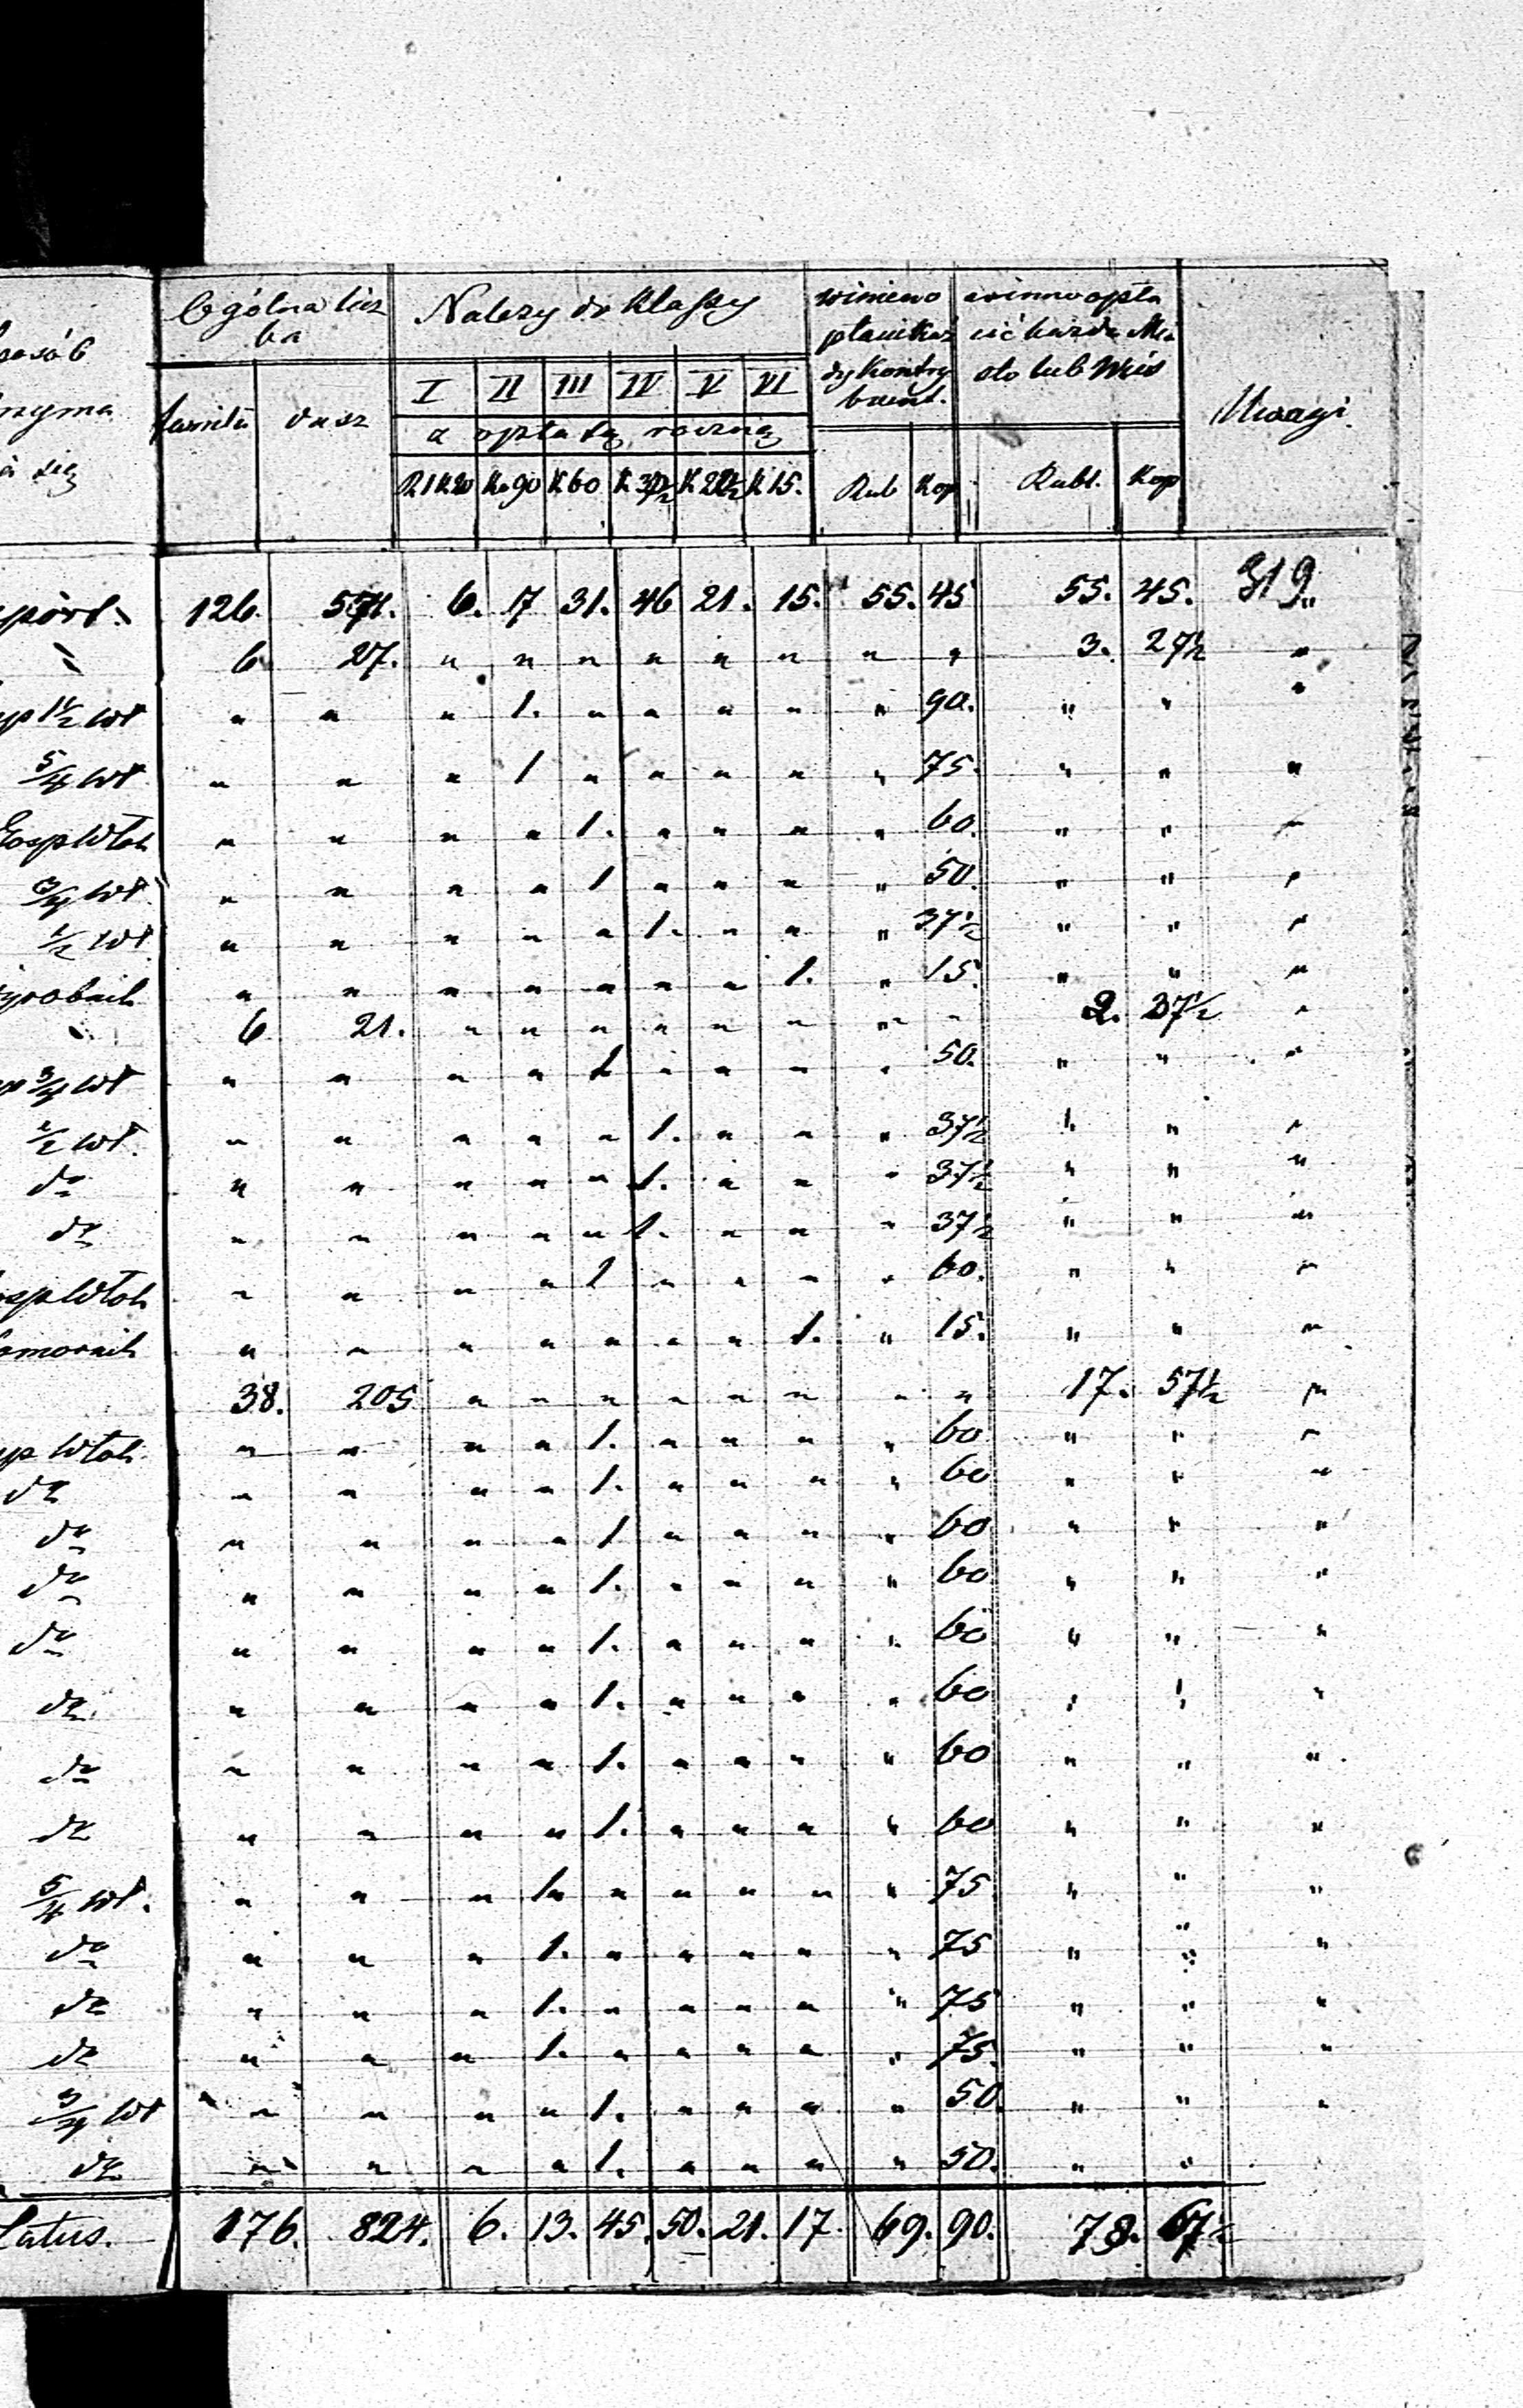 Ogólna licz
ba
Należy do Klassy
winien
płacić każ
dy Kontry
buent.
winno opła
cić każde Mia
sto lub Wieś
Uwagi.
osób
familii dusz
I II III IV V VI
z opłatą roczną
się
R 1 K 20 K. 90 K 60 K 37½ K 22½ K 15. Rub Kop Rubl. Kop
port. 126. 571. 6. 17 31. 46 21. 15. 55. 45 55. 45. 319.
" 6 27. " " " " " " " " 3. 27½ "
1½ Wł " " " 1. " " " " " 90. " " "
5/4 Wł " " " 1 " " " " " 75. " " "
Gosp Włoh " " " " 1. " " " " 60. " " "
3/4 Wł " " " " 1 " " " " 50. " " "
½ Wł " " " " " 1. " " " 37½ " " "
yrobnik " " " " " " " 1. " 15. " " "
" 6 21. " " " " " " " " 2. 37½ "
3/4 Wł " " " " 1 " " " " 50. " " "
½ Wł. " " " " " 1. " " " 37½ " " "
do " " " " " 1. " " " 37½ " " "
do " " " " " 1. " " " 37½ " " "
osp Włoh " " " " 1 " " " " 60. " " "
omornik " " " " " " " 1. " 15. " " "
38. 205 " " " " " " " " 17. 57½ "
Włoh " " " " 1. " " " " 60 " " "
do " " " " 1. " " " " 60 " " "
do " " " " 1 " " " " 60 " " "
do " " " " 1. " " " " 60 " " "
do " " " " 1. " " " " 60 " " "
do " " " " 1. " " " " 60 " " "
do " " " " 1. " " " " 60 " " "
do " " " " 1. " " " " 60 " " "
5/4 Wł. " " " 1 " " " " " 75 " " "
do " " " 1. " " " " " 75 " " "
do " " " 1. " " " " " 75 " " "
do " " " 1. " " " " " 75. " " "
3/4 Wł " " " " 1. " " " " 50. " " "
do " " " " 1. " " " " 50. " "
Latus. 176. 824. 6. 13. 45. 50. 21. 17. 69. 90. 78. 67½